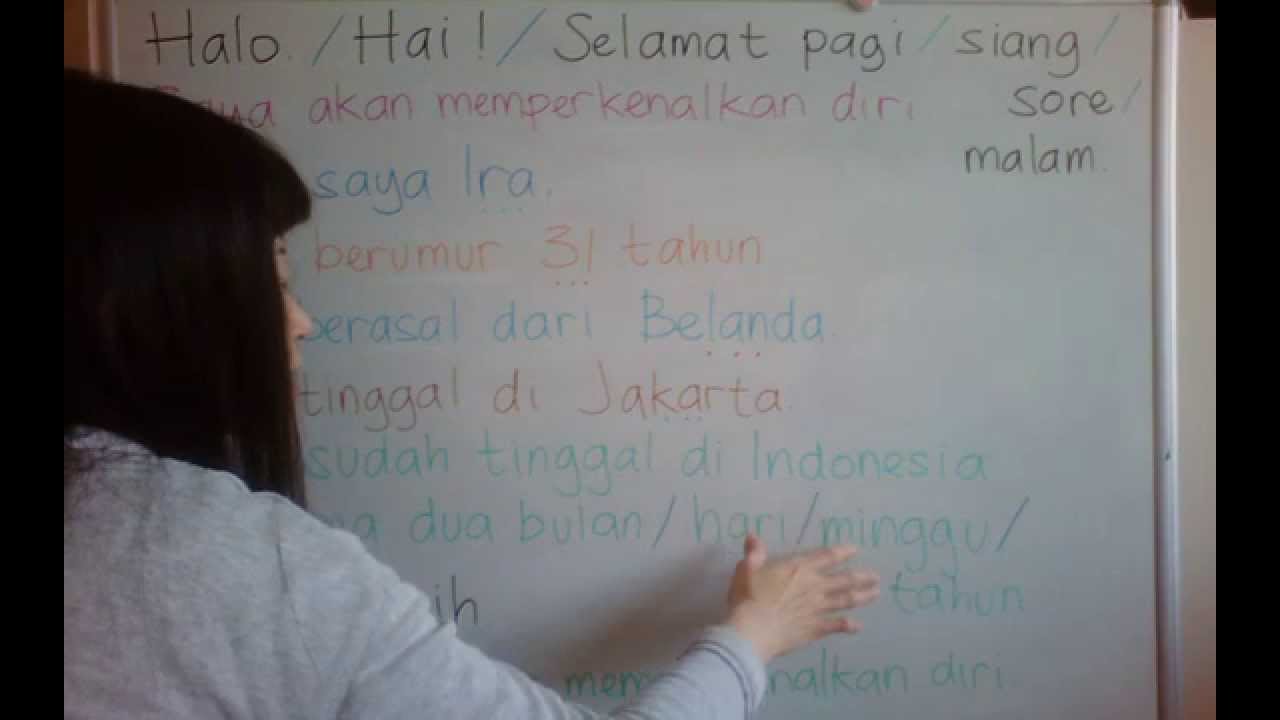 Halo. / Hai ! / Selamat pagi / siang /
akan memperkenalkan diri. sore /
malam.
saya Ira.
berumur 31 tahun
berasal dari Belanda.
tinggal di Jakarta.
sudah tinggal di Indonesia
dua bulan / hari / minggu /
tahun
diri.